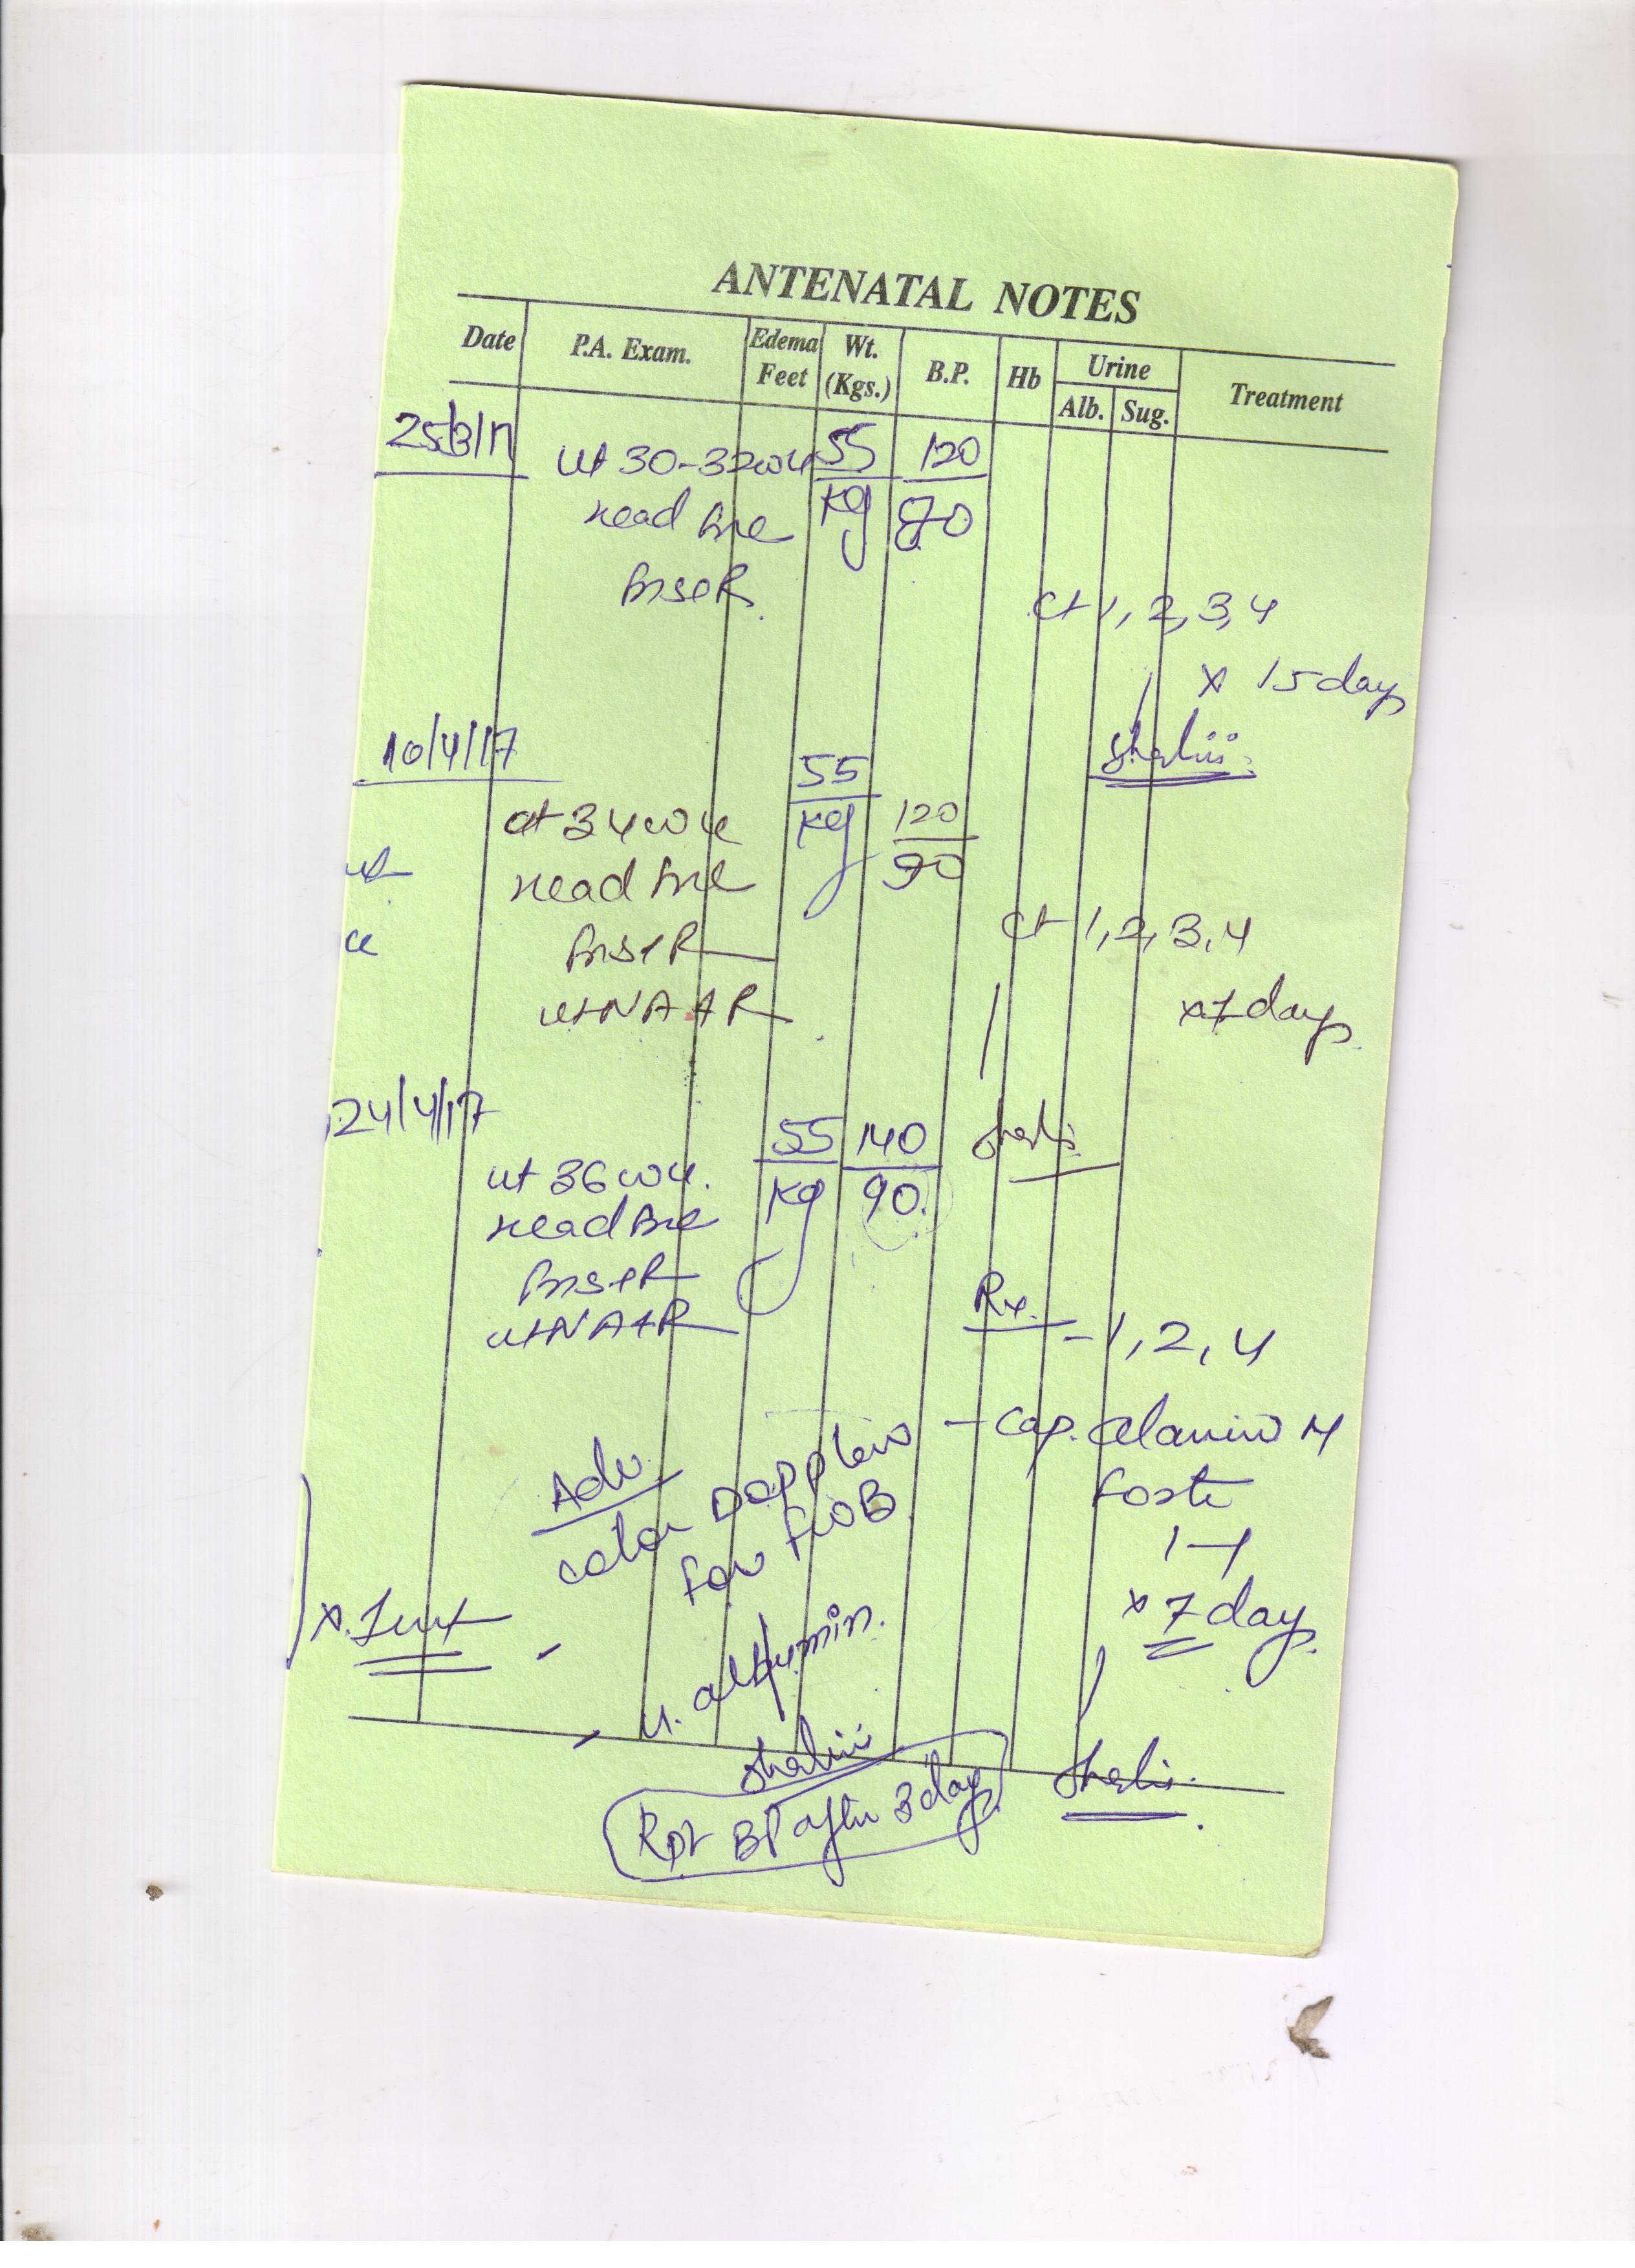 ANTENATAL NOTES
Date P.A. Exam. Edema Feet Wt. (Kgs.) B.P. Hb Urine Alb. Sug. Treatment
25/3/17
ut 30-32wk 55 kg 120
Head
ct 1, 2, 3, 4
x 15 days
Shalini
10/4/17
ut 34wk 55 kg 120/90
Head
ct 1, 2, 3, 4
x 7 days
24/4/17
ut 36wk. 55 kg 140/90
Head
Rx. - 1, 2, 4
- Cap. Alamin M
Forte
1-1
x 7 day
Adv.
color Doppler
for
u. albumin.
Shalini
Rpt BP after 3 days